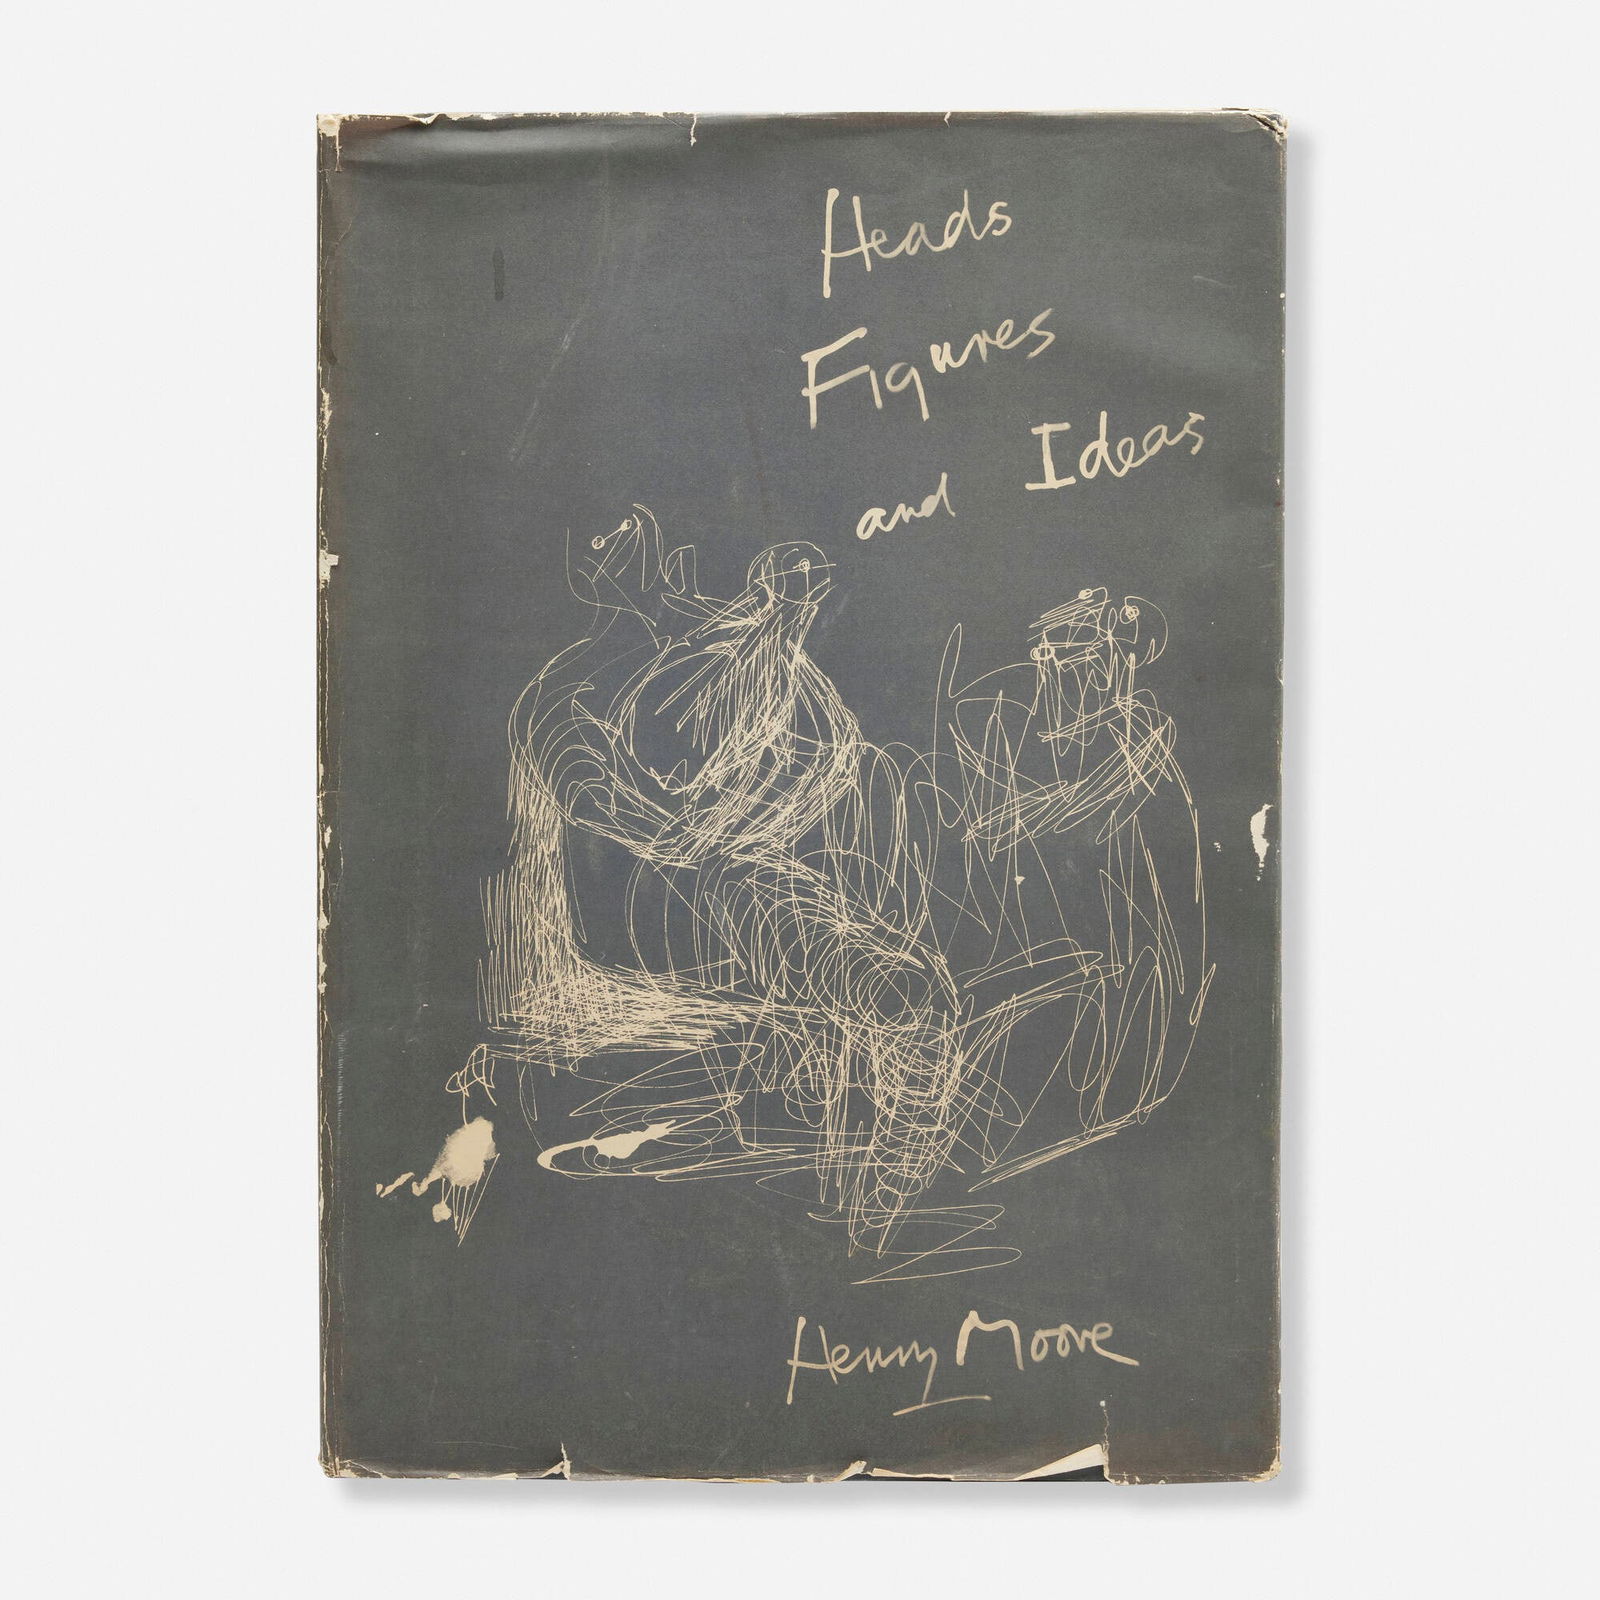 Heads
Figures
and Ideas
Henry Moore